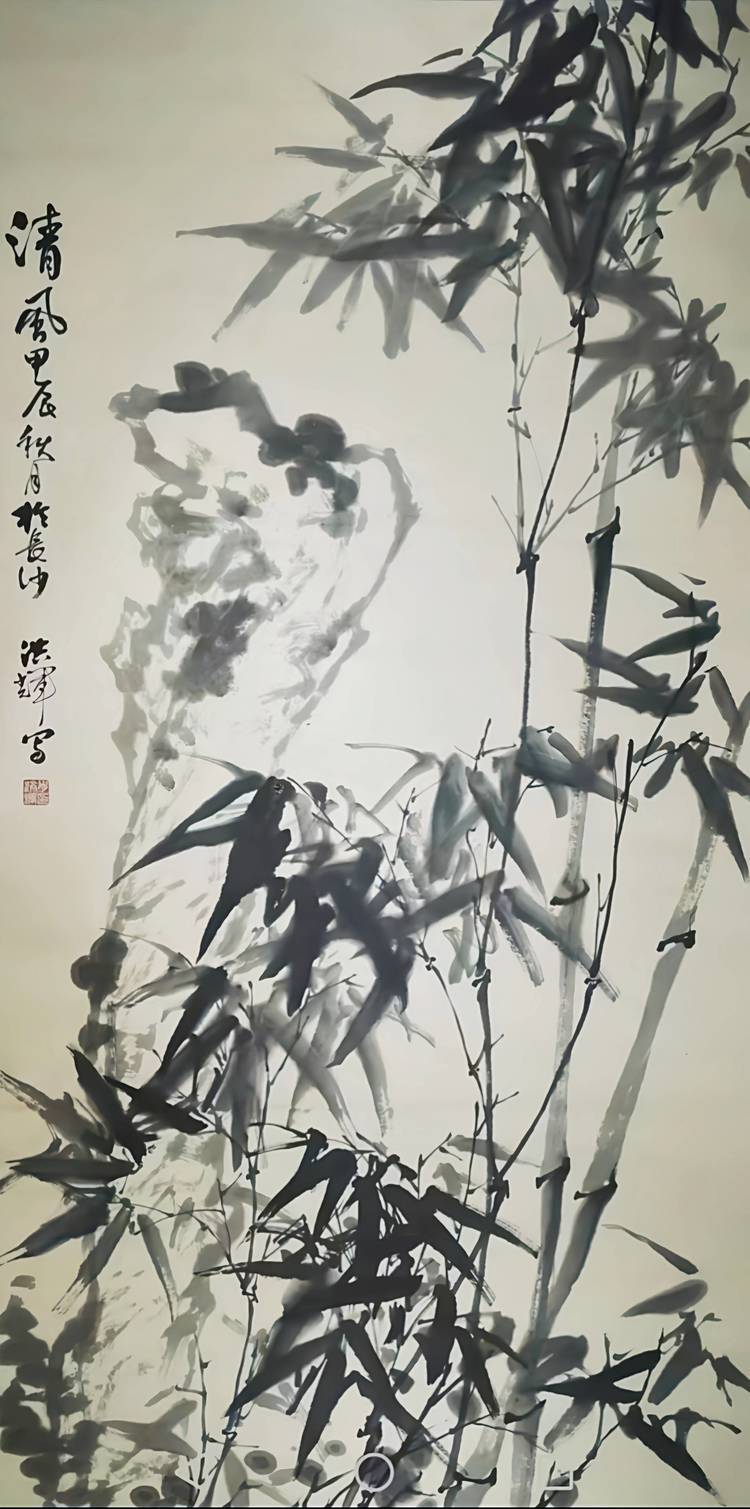 清風甲辰秋月於長沙
洪輝写